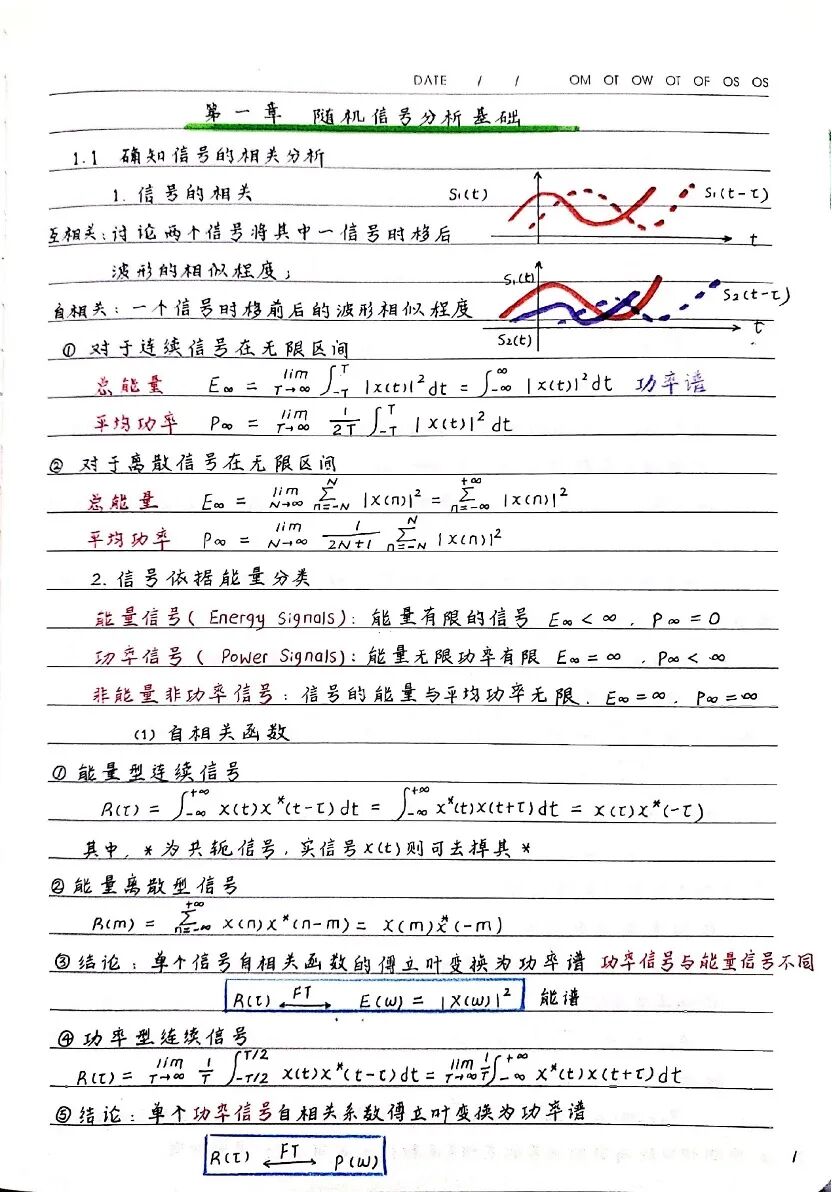 DATE / / OM OT OW OT OF OS OS
第一章 随机信号分析基础
1.1 确知信号的相关分析
1. 信号的相关 S₁(t) S₁(t-τ)
互相关:讨论两个信号将其中一信号时移后 t
波形的相似程度; S₁(t) S₂(t-τ)
自相关:一个信号时移前后的波形相似程度 t
S₂(t)
① 对于连续信号在无限区间
总能量 E∞ = lim T→∞ ∫_{-T}^{T} |x(t)|² dt = ∫_{-∞}^{∞} |x(t)|² dt 功率谱
平均功率 P∞ = lim T→∞ 1/2T ∫_{-T}^{T} |x(t)|² dt
② 对于离散信号在无限区间
总能量 E∞ = lim N→∞ Σ_{n=-N}^{N} |x(n)|² = Σ_{n=-∞}^{+∞} |x(n)|²
平均功率 P∞ = lim N→∞ 1/(2N+1) Σ_{n=-N}^{N} |x(n)|²
2. 信号依据能量分类
能量信号( Energy Signals):能量有限的信号 E∞ < ∞ , P∞ = 0
功率信号( Power Signals):能量无限功率有限 E∞ = ∞ , P∞ < ∞
非能量非功率信号:信号的能量与平均功率无限. E∞ = ∞, P∞ = ∞
(1) 自相关函数
① 能量型连续信号
R(τ) = ∫_{-∞}^{+∞} x(t)x*(t-τ)dt = ∫_{-∞}^{+∞} x*(t)x(t+τ)dt = x(τ)x*(-τ)
其中, * 为共轭信号,实信号x(t)则可去掉其*
② 能量离散型信号
R(m) = Σ_{n=-∞}^{+∞} x(n)x*(n-m) = x(m)x*(-m)
③ 结论:单个信号自相关函数的傅立叶变换为功率谱 功率信号与能量信号不同
R(τ) ←FT→ E(ω) = |X(ω)|² 能谱
④ 功率型连续信号
R(τ) = lim T→∞ 1/T ∫_{-T/2}^{T/2} x(t)x*(t-τ)dt = lim T→∞ 1/T ∫_{-∞}^{+∞} x*(t)x(t+τ)dt
⑤ 结论:单个功率信号自相关系数傅立叶变换为功率谱
R(τ) ←FT→ P(ω)
1